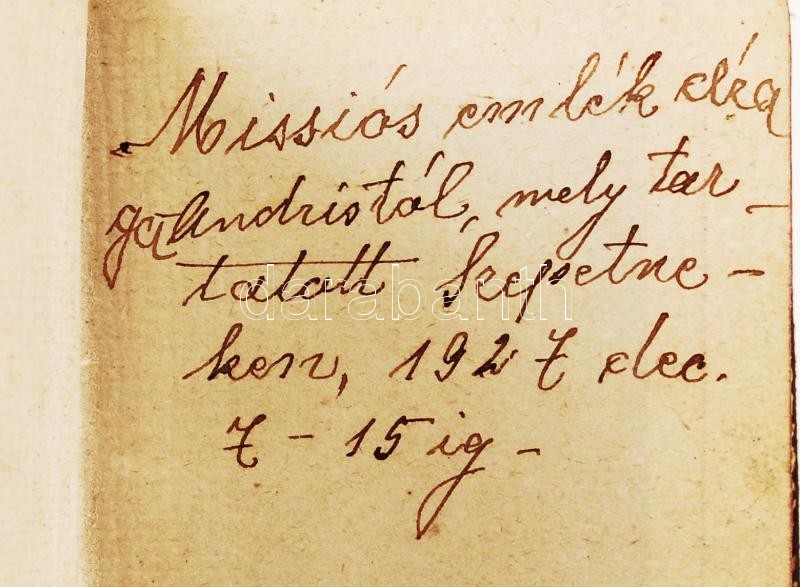 Missiós emlék déd
gaAndristól, mely tar-
tatott Szepetne-
ken, 1927 dec.
7 - 15 ig -
darabanth